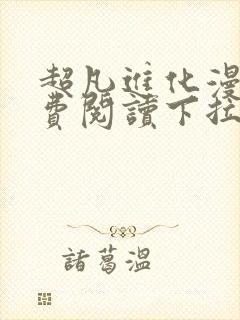 超凡進化漫
費閱讀下拉
諸葛溫